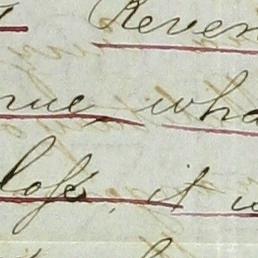 Reven
nue, wha
loss, it w